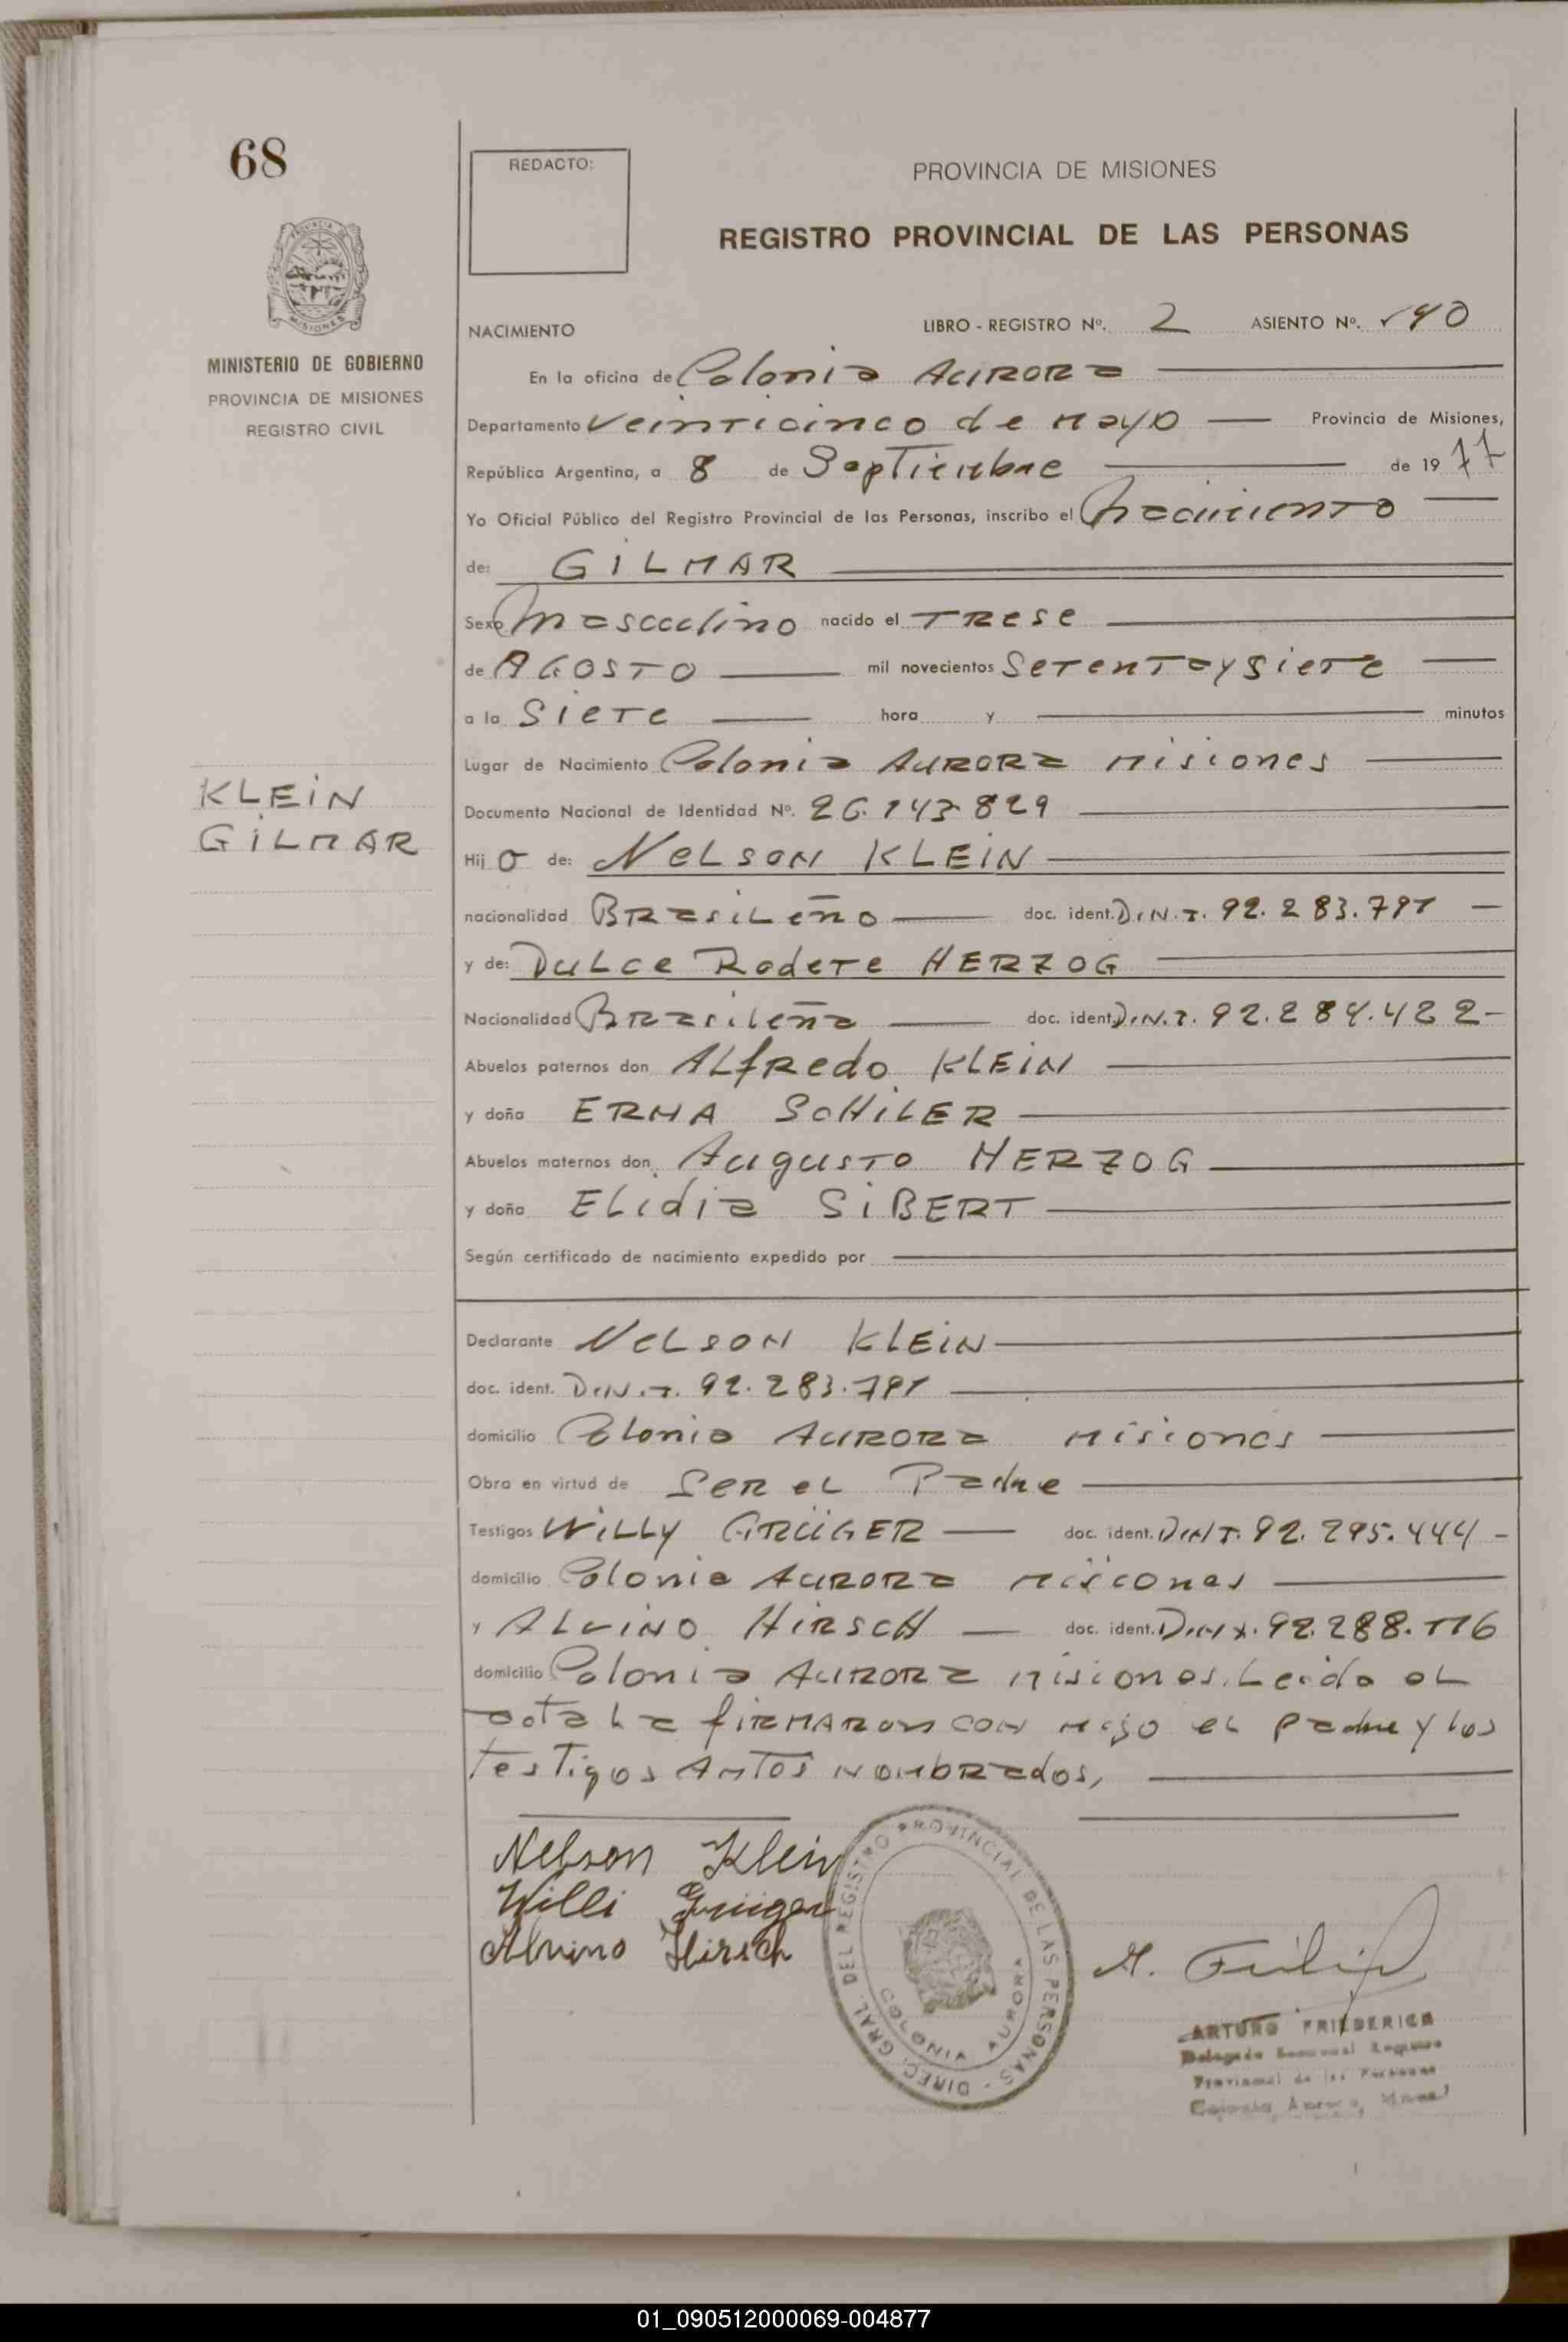 68
REDACTO:
PROVINCIA DE MISIONES
REGISTRO PROVINCIAL DE LAS PERSONAS
PROVINCIA DE
MISIONES
MINISTERIO DE GOBIERNO
PROVINCIA DE MISIONES
REGISTRO CIVIL
KLEIN
GILMAR
NACIMIENTO LIBRO - REGISTRO Nº. 2 ASIENTO Nº.
En la oficina de Colonia AURORA
Departamento Veinticinco de Mayo Provincia de Misiones,
República Argentina, a 8 de Septiembre de 1977
Yo Oficial Público del Registro Provincial de las Personas, inscribo el Nacimiento
de: GILMAR
Sexo Masculino nacido el TRESE
de AGOSTO mil novecientos Setentaysiete
a la Siete hora y minutos
Lugar de Nacimiento Colonia AURORA Misiones
Documento Nacional de Identidad Nº. 26.143.829
Hijo de: NELSON KLEIN
nacionalidad BRASILEÑO doc. ident. D.N.I. 92.283.791
y de: DULCE Rodete HERZOG
Nacionalidad Brasileña doc. ident. D.N.I. 92.284.422-
Abuelos paternos don ALfRedo KLEIN
y doña ERMA SCHILER
Abuelos maternos don Augusto HERZOG
y doña ELidia SIBERT
Según certificado de nacimiento expedido por
Declarante NELSON KLEIN
doc. ident. D.N.I. 92.283.791
domicilio Colonia AURORA Misiones
Obra en virtud de SER EL Padre
Testigos WILLY GRÜGER doc. ident. D.N.I. 92.295.444-
domicilio Colonia AURORA Misiones
y ALVINO HIRSCH doc. ident. 92.288.116
domicilio Colonia AURORA Misiones. Leida el
acta La fIRMARON CON migo el padre y los
Testigos Antes NOMBRados,
Nelson Klein
Willi Grüger
Alvino Hirsch
DIREC. GRAL. DEL REGISTRO PROVINCIAL DE LAS PERSONAS -
COLONIA AURORA
ARTURO FRIEDERICH
Delegado Seccional Registro
Provincial de las Personas
Colonia Aurora, Misiones
01_090512000069-004877